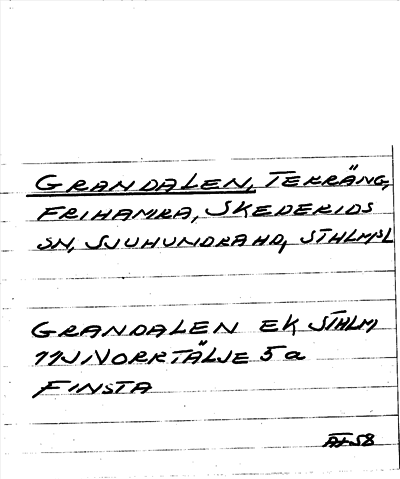 GRANDALEN, TERRÄNG,
FRIHAMRA, SKEDERIDS
SN, SJUHUNDRA HD, STHLMSL
GRANDALEN EK STHLM
11J NORRTÄLJE 5a
FINSTA